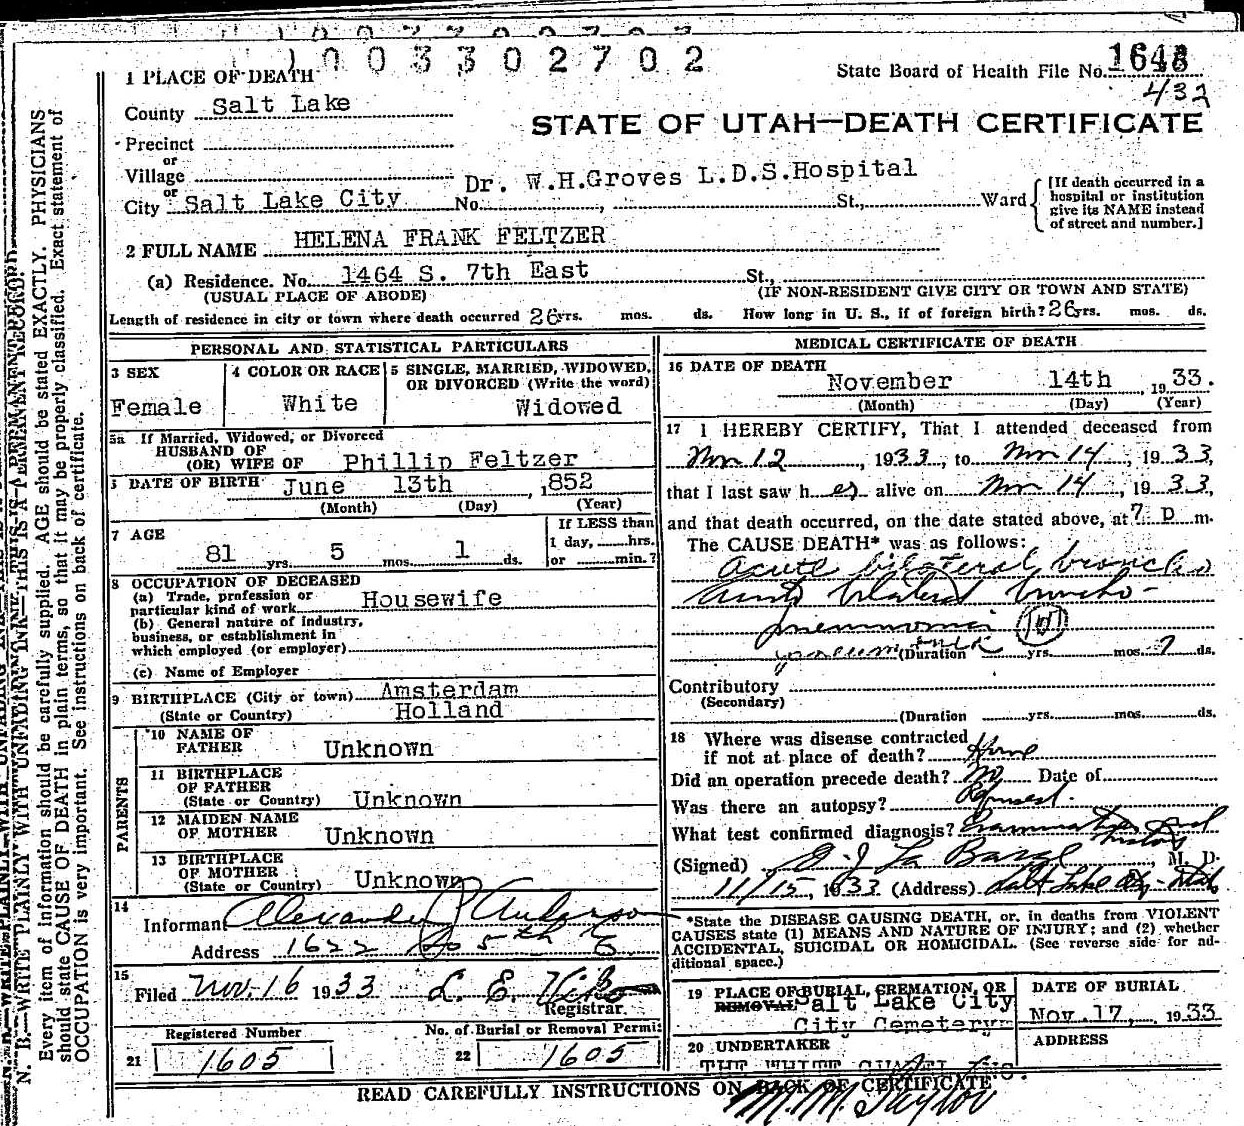 1003302702
1 PLACE OF DEATH
State Board of Health File No. 1648
432
County Salt Lake
STATE OF UTAH—DEATH CERTIFICATE
Precinct
or
Village
or
City Salt Lake City No. Dr. W.H.Groves L.D.S.Hospital St., Ward
[If death occurred in a hospital or institution give its NAME instead of street and number.]
2 FULL NAME HELENA FRANK FELTZER
(a) Residence. No. 1464 S. 7th East St.,
(USUAL PLACE OF ABODE) (IF NON-RESIDENT GIVE CITY OR TOWN AND STATE)
Length of residence in city or town where death occurred 26 yrs. mos. ds. How long in U. S., if of foreign birth? 26 yrs. mos. ds.
PERSONAL AND STATISTICAL PARTICULARS
3 SEX
Female
4 COLOR OR RACE
White
5 SINGLE, MARRIED, WIDOWED, OR DIVORCED (Write the word)
Widowed
5a If Married, Widowed, or Divorced
HUSBAND OF
(OR) WIFE OF Phillip Feltzer
DATE OF BIRTH June 13th, 1852
(Month) (Day) (Year)
7 AGE
81 yrs. 5 mos. 1 ds.
If LESS than
1 day, hrs.
or min.?
8 OCCUPATION OF DECEASED
(a) Trade, profession or
particular kind of work Housewife
(b) General nature of industry,
business, or establishment in
which employed (or employer)
(c) Name of Employer
9 BIRTHPLACE (City or town) Amsterdam
(State or Country) Holland
PARENTS
10 NAME OF
FATHER Unknown
11 BIRTHPLACE
OF FATHER
(State or Country) Unknown
12 MAIDEN NAME
OF MOTHER Unknown
13 BIRTHPLACE
OF MOTHER
(State or Country) Unknown
14
Informant Alexander P Anderson
Address 1622 So 5th E
15
Filed Nov. 16 1933 L. E.
Registrar.
Registered Number
21 1605
No. of Burial or Removal Permit
22 1605
MEDICAL CERTIFICATE OF DEATH
16 DATE OF DEATH
November 14th, 1933.
(Month) (Day) (Year)
17 I HEREBY CERTIFY, That I attended deceased from
Nov 12, 1933, to Nov 14, 1933,
that I last saw her alive on Nov 14, 1933,
and that death occurred, on the date stated above, at 7 p m.
The CAUSE DEATH* was as follows:
Acute bilateral broncho
Acute bilateral broncho-
pneumonia
(Duration yrs. mos. 7 ds.
Contributory
(Secondary)
(Duration yrs. mos. ds.
18 Where was disease contracted
if not at place of death? Home
Did an operation precede death? No Date of
Was there an autopsy? Refused.
What test confirmed diagnosis? Examination and
history
(Signed) O. J. La Barge, M. D.
11/15, 1933 (Address) Salt Lake City - Utah
*State the DISEASE CAUSING DEATH, or, in deaths from VIOLENT
CAUSES state (1) MEANS AND NATURE OF INJURY; and (2) whether
ACCIDENTAL, SUICIDAL OR HOMICIDAL. (See reverse side for ad-
ditional space.)
19 PLACE OF BURIAL, CREMATION, OR
REMOVAL Salt Lake City
City Cemetery
DATE OF BURIAL
Nov. 17, 1933
20 UNDERTAKER
ADDRESS
READ CAREFULLY INSTRUCTIONS ON BACK OF CERTIFICATE
M. M. Taylor
N. B.—WRITE PLAINLY WITH UNFADING INK—THIS IS A PERMANENT RECORD.
Every item of information should be carefully supplied. AGE should be stated EXACTLY. PHYSICIANS
should state CAUSE OF DEATH in plain terms, so that it may be properly classified. Exact statement of
OCCUPATION is very important. See instructions on back of certificate.